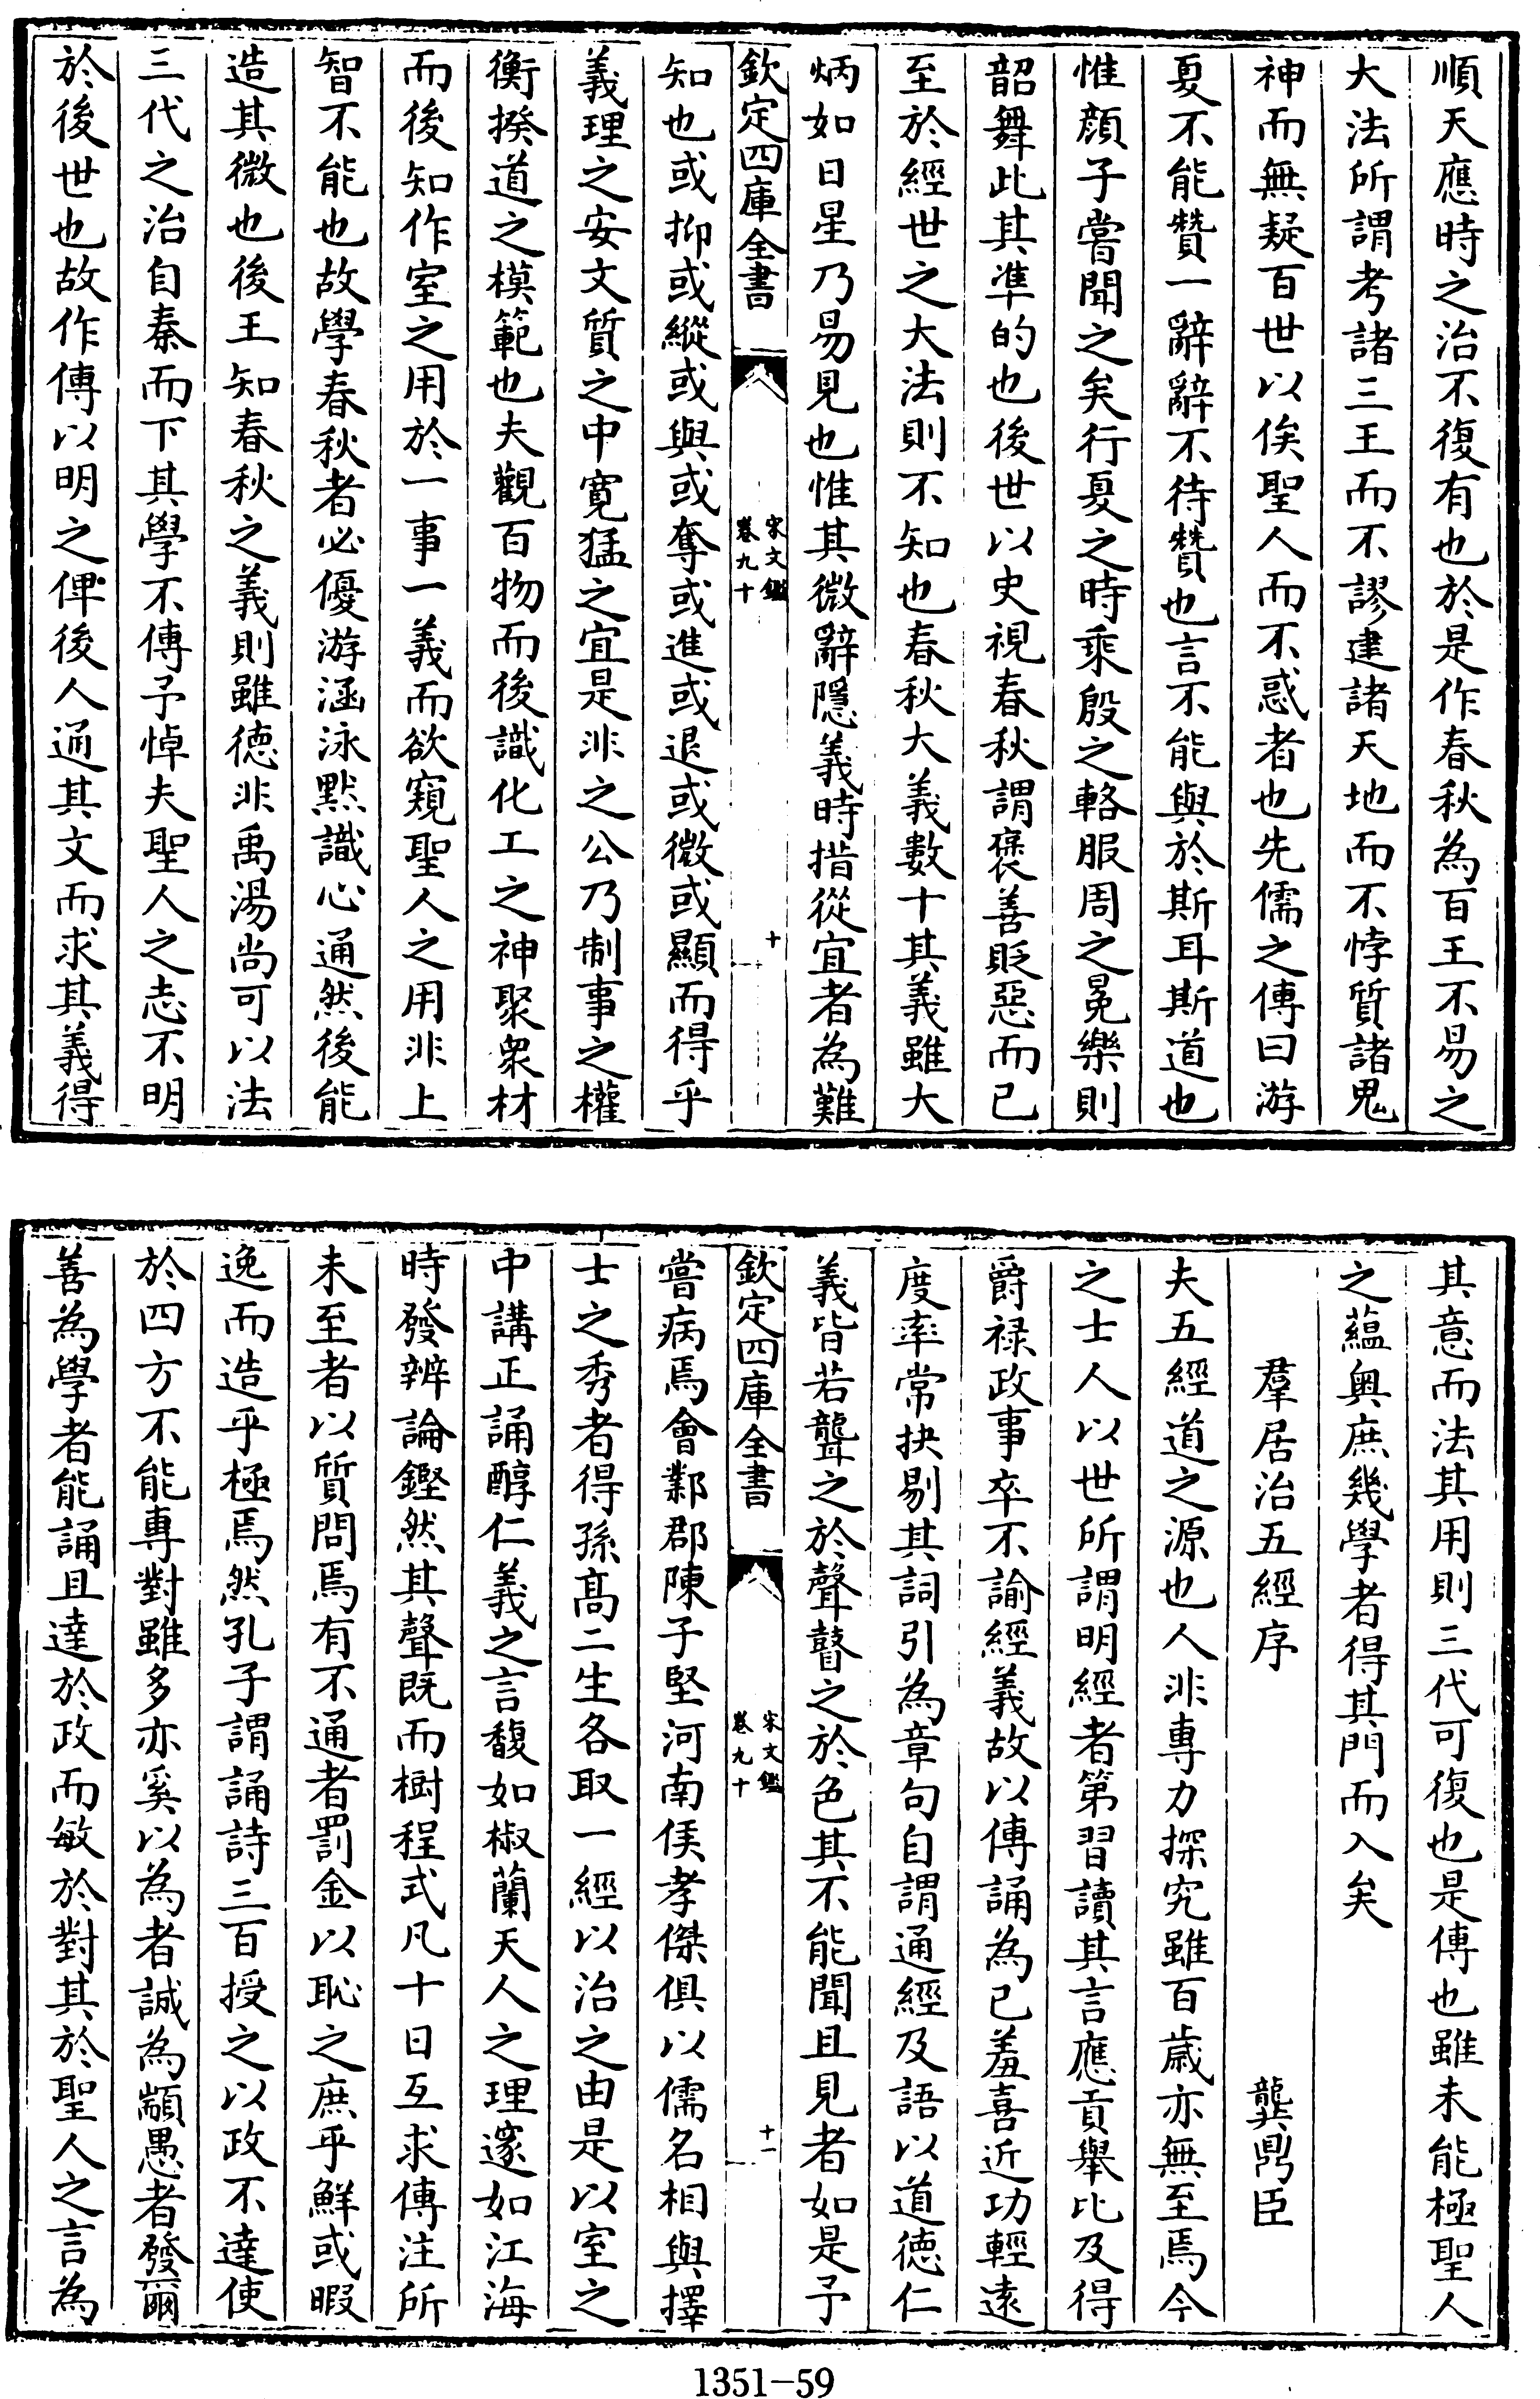 順天應時之治不復有也於是作春秋為百王不易之
大法所謂考諸三王而不謬建諸天地而不悖質諸鬼
神而無疑百世以俟聖人而不惑者也先儒之傳曰游
夏不能贊一辭辭不待贊也言不能與於斯耳斯道也
惟顔子嘗聞之矣行夏之時乘殷之輅服周之冕樂則
韶舞此其準的也後世以史視春秋謂褒善貶惡而已
至於經世之大法則不知也春秋大義數十其義雖大
炳如日星乃易見也惟其微辭隱義時措從宜者為難
欽定四庫全書
宋文鑑
卷九十
十
知也或抑或縱或與或奪或進或退或微或顯而得乎
義理之安文質之中寛猛之宜是非之公乃制事之權
衡揆道之模範也夫觀百物而後識化工之神聚衆材
而後知作室之用於一事一義而欲窺聖人之用非上
智不能也故學春秋者必優游涵泳黙識心通然後能
造其微也後王知春秋之義則雖徳非禹湯尚可以法
三代之治自秦而下其學不傳予悼夫聖人之志不明
於後世也故作傳以明之俾後人通其文而求其義得
其意而法其用則三代可復也是傳也雖未能極聖人
之蘊奥庶幾學者得其門而入矣
羣居治五經序
龔鼎臣
夫五經道之源也人非專力探究雖百歲亦無至焉今
之士人以世所謂明經者第習讀其言應貢舉比及得
爵禄政事卒不諭經義故以傳誦為已羞喜近功輕逺
度率常抉剔其詞引為章句自謂通經及語以道徳仁
義皆若聾之於聲瞽之於色其不能聞且見者如是予
欽定四庫全書
宋文鑑
卷九十
十一
嘗病焉會鄴郡陳子堅河南侯孝傑俱以儒名相與擇
士之秀者得孫髙二生各取一經以治之由是以室之
中講正誦醇仁義之言馥如椒蘭天人之理邃如江海
時發辨論鏗然其聲既而樹程式凡十日互求傳注所
未至者以質問焉有不通者罰金以恥之庶乎鮮或暇
逸而造乎極焉然孔子謂誦詩三百授之以政不達使
於四方不能專對雖多亦奚以為者誠為顓愚者發爾
善為學者能誦且達於政而敏於對其於聖人之言為
1351-59